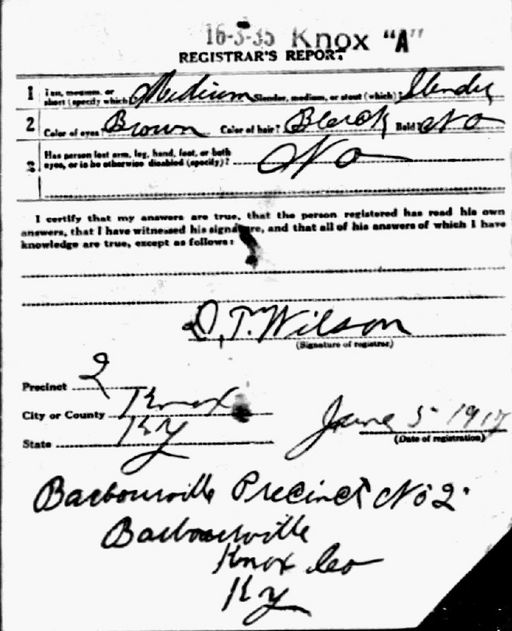 16-3-35 Knox "A"
REGISTRAR'S REPORT
1 Tall, medium, or short (specify which) Medium Slender, medium, or stout (which)? Slender
2 Color of eyes? Brown Color of hair? Black Bald? No
3 Has person lost arm, leg, hand, foot, or both eyes, or is he otherwise disabled (specify)? No
I certify that my answers are true, that the person registered has read his own
answers, that I have witnessed his signature, and that all of his answers of which I have
knowledge are true, except as follows:
D. T. Wilson
(Signature of registrar)
Precinct 2
City or County Knox
State Ky
June 5 1917
(Date of registration)
Barbourville Precinct No 2.
Barbourville
Knox Co
Ky